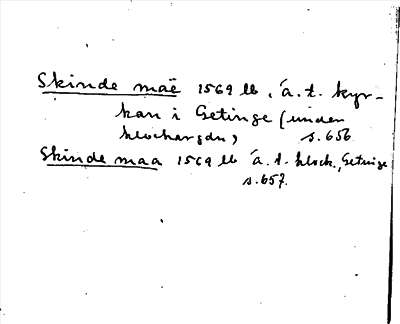 Skinde maë 1569 lb, á. t. kyr-
kan i Getinge (under
klockargdn) s. 656
Skinde maa 1569 lb á. t. klock., Getinge
s. 657.